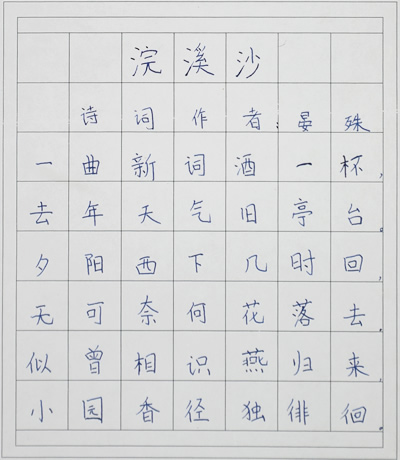 浣溪沙
诗词作者:晏殊
一曲新词酒一杯,
去年天气旧亭台。
夕阳西下几时回,
无可奈何花落去,
似曾相识燕归来.
小园香径独徘徊。